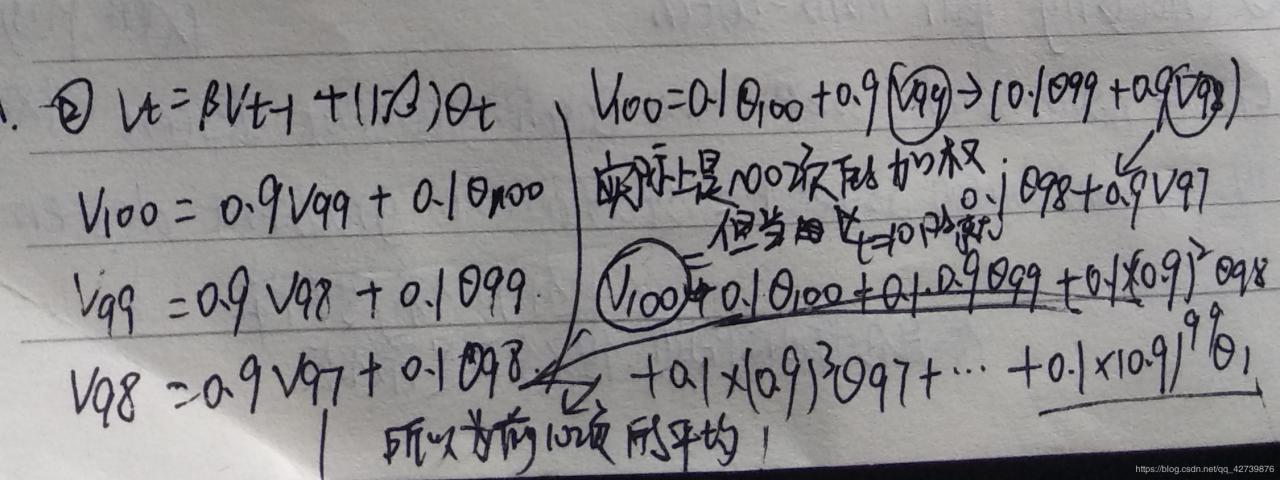 ② Vt=βVt-1+(1-β)θt
V100=0.9V99+0.1θ100
V99=0.9V98+0.1θ99.
V98=0.9V97+0.1θ98.
V100=0.1θ100+0.9(V99)→(0.1θ99+0.9V98)
0.1θ98+0.9V97
实际上是100次的加权.
但当 t=10时
V100=0.1θ100+0.1·0.9θ99+0.1×(0.9)²θ98
+0.1×(0.9)³θ97+…+0.1×(0.9)⁹⁹θ1
所以为前10项的平均!
https://blog.csdn.net/qq_42739876